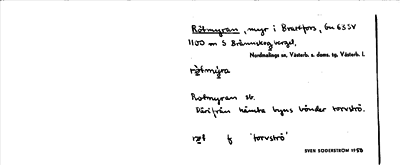 Rötmyran, myr i Brattfors, Gn 635V
1100 m S Brännskogberget,
Nordmalings sn, Västerb. s. doms. tg. Västerb. l.
rötmýra
Rotmyran sk.
Därifrån hämta byns bönder torvströ.
rot f 'torvströ'
SVEN SÖDERSTRÖM 1958